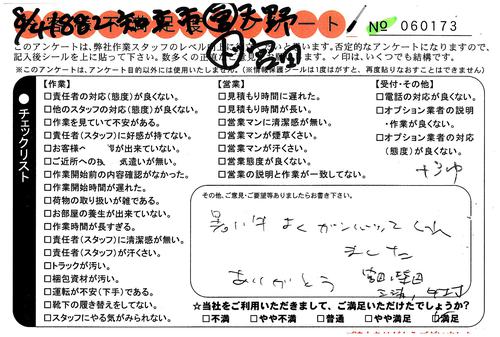 № 060173
このアンケートは、弊社作業スタッフのレベル
否定的なアンケートになりますので、
記入後シールを上に貼って下さい。
✓印は、いくつでも結構です。
※このアンケートは、アンケート目的以外には使用いたしません。(※情報保護シールは1度がすと、再度貼りなおすことはできません)
●チェックリスト
【作業】
□責任者の対応(態度)が良くない。
□他のスタッフの対応(態度)が良くない。
□作業を見ていて不安がある。
□責任者(スタッフ)に好感が持てない。
□お客様へ が出来ていない。
□ご近所への 気遣いが無い。
□作業開始前の内容確認がなかった。
□作業開始時間が遅れた。
□荷物の取り扱いが雑である。
□お部屋の養生が出来ていない。
□作業時間が長すぎる。
□責任者(スタッフ)に清潔感が無い。
□責任者(スタッフ)が汗くさい。
□トラックが汚い。
□梱包資材が汚い。
□運転が不安(下手)である。
□靴下の履き替えをしてない。
□スタッフにやる気がみられない。
【営業】
□見積もり時間に遅れた。
□見積もり時間が長い。
□営業マンに清潔感が無い。
□営業マンが煙草くさい。
□営業マンが汗くさい。
□営業態度が良くない。
□営業の説明と作業が一致してない。
【受付・その他】
□電話の対応が良くない。
□オプション業者の説明
・作業が良くない。
□オプション業者の対応
(態度)が良くない。
その他、ご意見・ご要望等ありましたらお書き下さい。
暑い中 よくガンバッてくれ
ました
ありがとう
☆当社をご利用いただきまして、ご満足いただけたでしょうか?
□不満 □やや不満 □普通 □やや満足 □満足